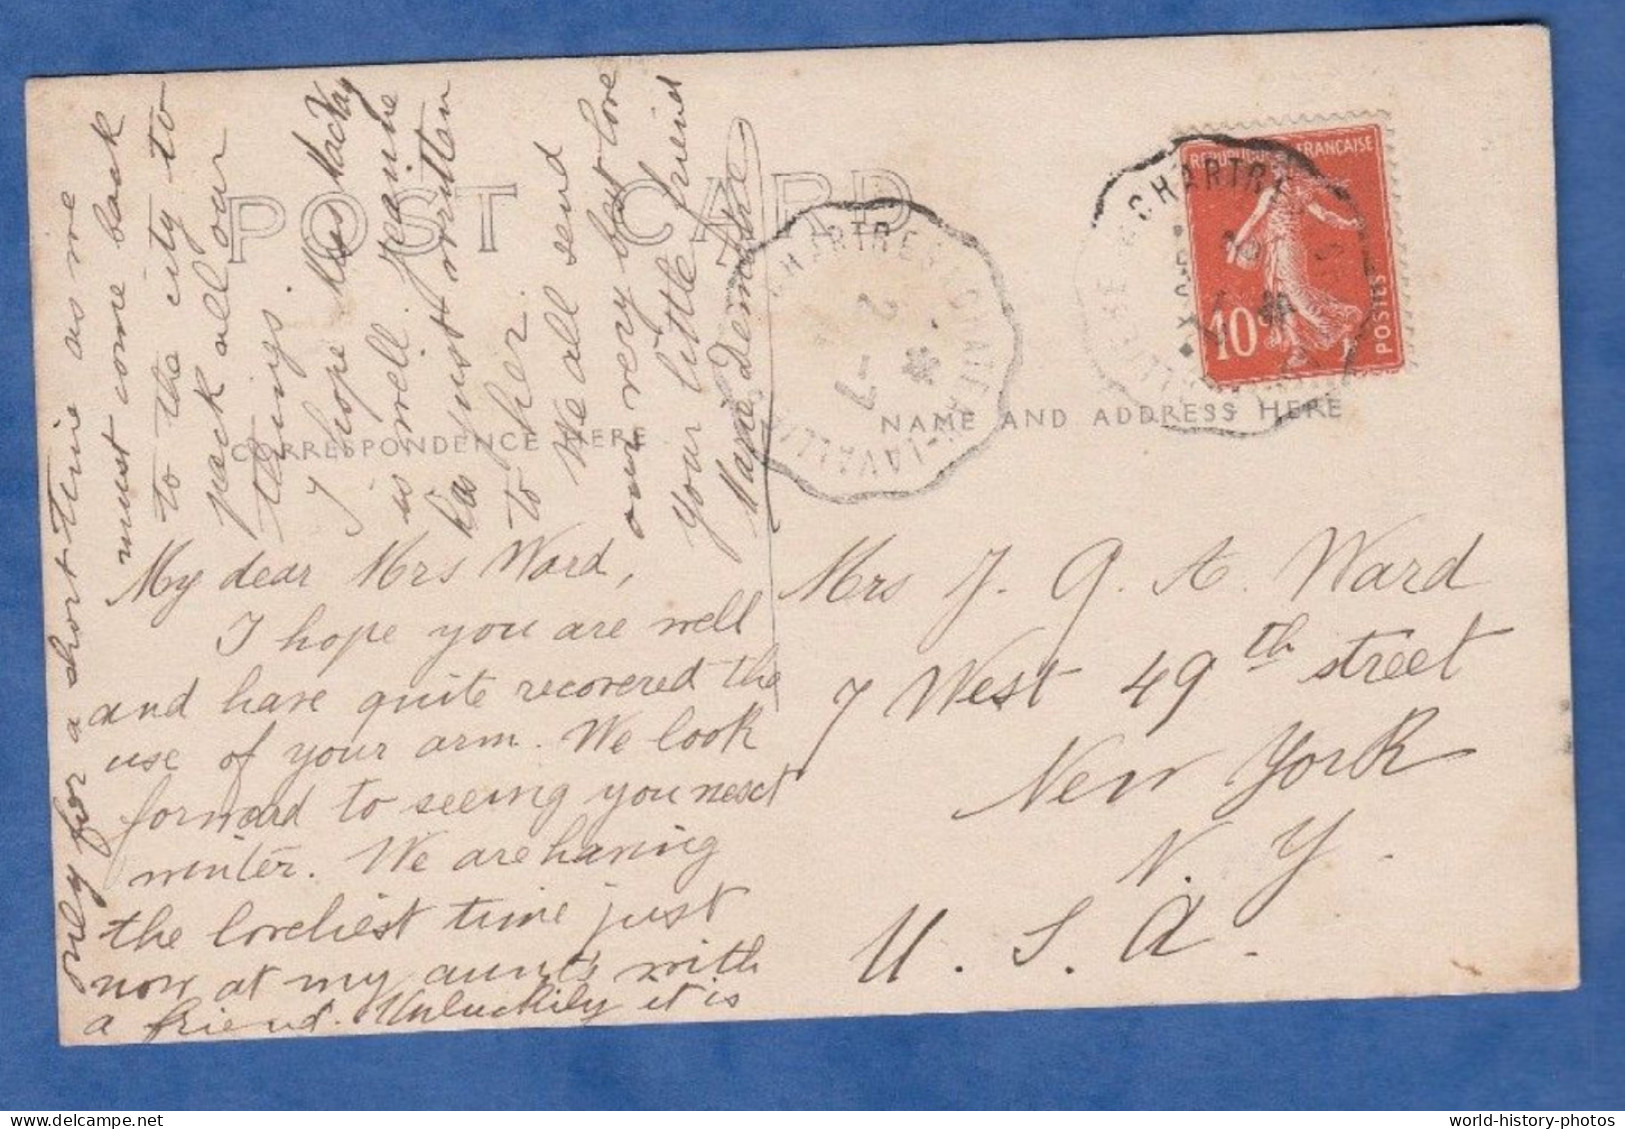 POST CARD
CORRESPONDENCE HERE
NAME AND ADDRESS HERE
My dear Mrs Ward,
I hope you are well
and have quite recovered the
use of your arm. We look
forward to seeing you next
winter. We are having
the loveliest time just
now at my aunt's with
a friend. Unluckily it is
only for a short time as we
must come back
to the city to
pack all our
things.
I hope Miss MacKay
is well. Jeanne
has just written
to her.
We all send
our very best love
Your little friend
Marie
Mrs J. G. A. Ward
7 West 49th street
New York
N. Y.
U. S. A.
REPUBLIQUE FRANCAISE
10c
POSTES
CHARTRES
CHARTRES
world-history-photos